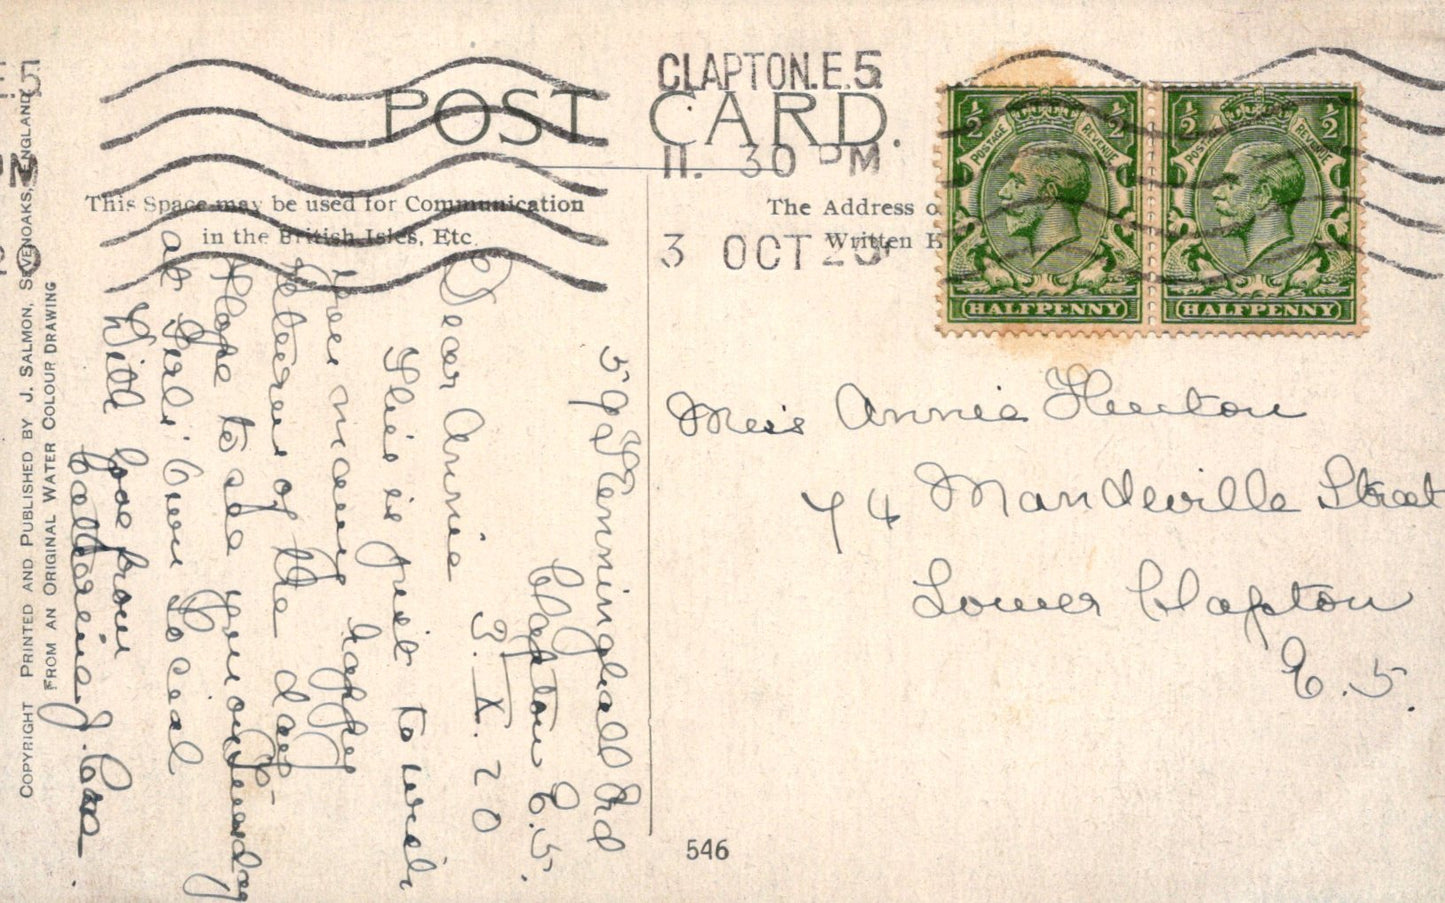 POST CARD.
CLAPTON.E.5
11. 30 PM
3 OCT 20
This Space may be used for Communication
in the British Isles, Etc.
The Address o
Written
HALFPENNY
HALFPENNY
POSTAGE REVENUE
POSTAGE REVENUE
1/2 1/2
1/2 1/2
Miss Annie
74 Mandeville Street
Lower Clapton
E.5.
59 Kenninghall Rd
Clapton E.5.
3.X.20
Dear Annie
This is just to wish
you many happy
returns of the day
Hope to see you on Tuesday
at Girls' Own Social
With love from
Catherine J.
COPYRIGHT PRINTED AND PUBLISHED BY J. SALMON, SEVENOAKS, ENGLAND
FROM AN ORIGINAL WATER COLOUR DRAWING
546